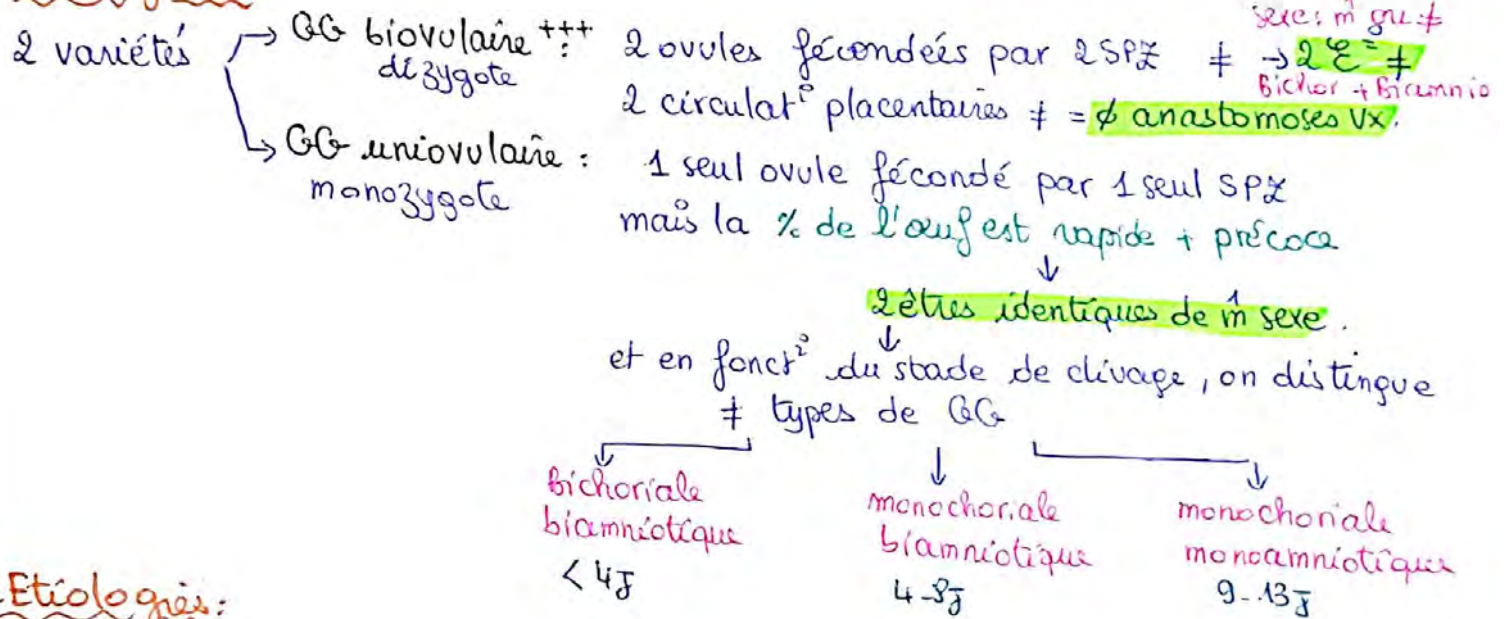 sexe: m̂ ou ≠
2 variétés → GG biovulaire +++ : 2 ovules fécondées par 2 SPZ ≠ → 2 ≠
dizygote
Bichor + Biamnio
2 circulat° placentaires ≠ = ∅ anastomoses Vx.
↳ GG uniovulaire : 1 seul ovule fécondé par 1 seul SPZ
monozygote
mais la % de l'œuf est rapide + précoce
↓
2 êtres identiques de m̂ sexe.
↓
et en fonct° du stade de clivage, on distingue
≠ types de GG
Bichoriale monochoriale monochoriale
biamniotique biamniotique monoamniotique
< 4J 4-8J 9-13J
Etiologies: